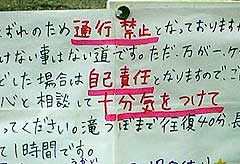 どおれのため通行禁止となっておりますが
けない事はない道です。ただ、万が一、ケ
どした場合は自己責任となりますのでご
バと相談して十分気をつけて
ってください。滝つぼまで往復40分、長
て1時間です。